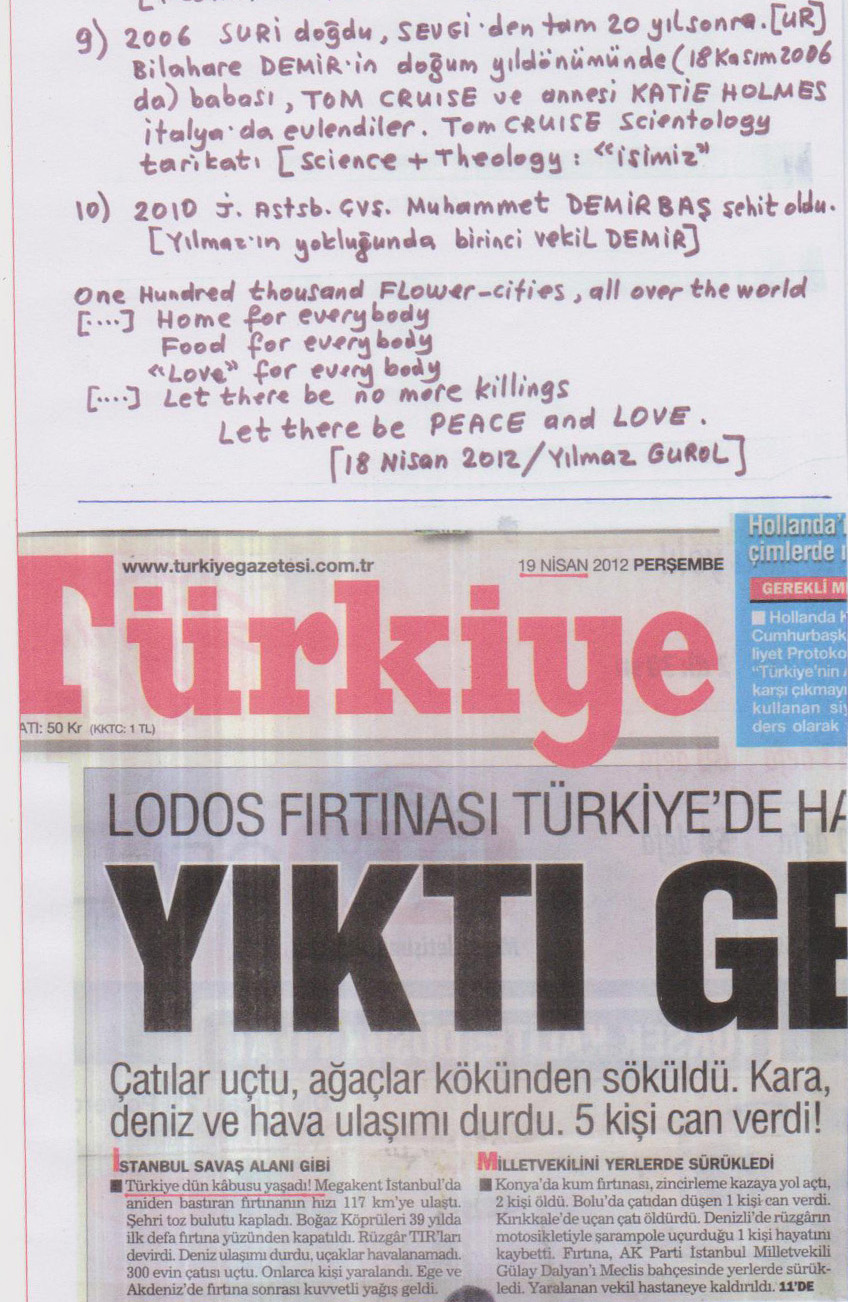 9) 2006 SURİ doğdu, SEVGİ'den tam 20 yıl sonra. [UR]
Bilahare DEMİR'in doğum yıldönümünde (18 Kasım 2006
da) babası, TOM CRUISE ve annesi KATİE HOLMES
italya'da evlendiler. Tom CRUISE Scientology
tarikatı [Science + Theology : “isimiz”
10) 2010 J. Astsb. ÇVŞ. Muhammet DEMİRBAŞ şehit oldu.
[Yılmaz'ın yokluğunda birinci vekil DEMİR]
One Hundred thousand Flower-cities, all over the world
[....] Home for everybody
Food for everybody
“Love” for every body
[....] Let there be no more killings
Let there be PEACE and LOVE.
[18 Nisan 2012/Yılmaz GUROL]
www.turkiyegazetesi.com.tr
19 NİSAN 2012 PERŞEMBE
Türkiye
ATI: 50 Kr (KKTC: 1 TL)
Hollanda'
çimlerde
GEREKLİ M
Hollanda K
Cumhurbaşk
liyet Protoko
“Türkiye'nin
karşı çıkmayı
kullanan siy
ders olarak
LODOS FIRTINASI TÜRKİYE'DE HA
YIKTI GE
Çatılar uçtu, ağaçlar kökünden söküldü. Kara,
deniz ve hava ulaşımı durdu. 5 kişi can verdi!
İSTANBUL SAVAŞ ALANI GİBİ
Türkiye dün kâbusu yaşadı! Megakent İstanbul'da
aniden bastıran fırtınanın hızı 117 km'ye ulaştı.
Şehri toz bulutu kapladı. Boğaz Köprüleri 39 yılda
ilk defa fırtına yüzünden kapatıldı. Rüzgâr TIR'ları
devirdi. Deniz ulaşımı durdu, uçaklar havalanamadı.
300 evin çatısı uçtu. Onlarca kişi yaralandı. Ege ve
Akdeniz'de fırtına sonrası kuvvetli yağış geldi.
MİLLETVEKİLİNİ YERLERDE SÜRÜKLEDİ
Konya'da kum fırtınası, zincirleme kazaya yol açtı,
2 kişi öldü. Bolu'da çatıdan düşen 1 kişi can verdi.
Kırıkkale'de uçan çatı öldürdü. Denizli'de rüzgârın
motosikletiyle şarampole uçurduğu 1 kişi hayatını
kaybetti. Fırtına, AK Parti İstanbul Milletvekili
Gülay Dalyan'ı Meclis bahçesinde yerlerde sürük-
ledi. Yaralanan vekil hastaneye kaldırıldı. 11'DE